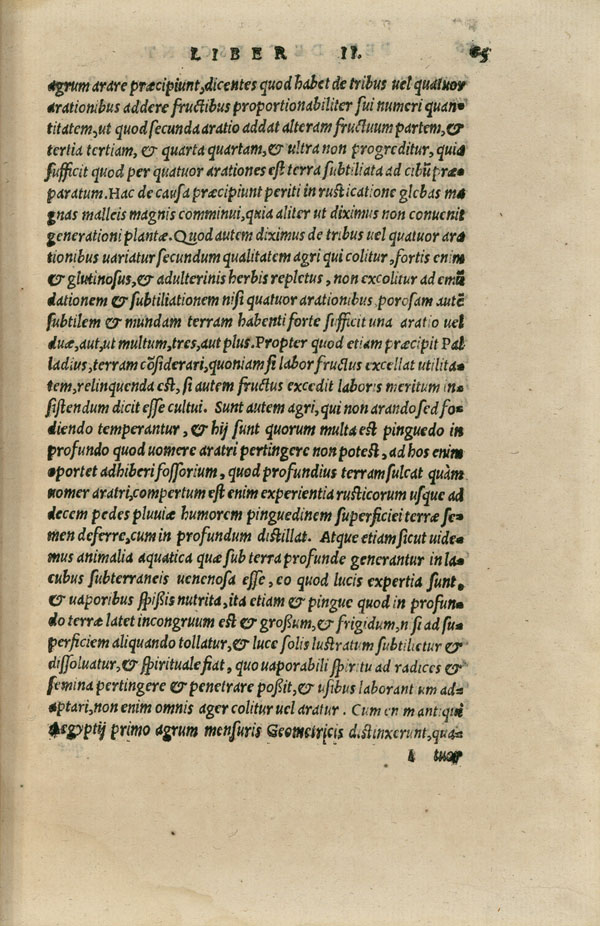 LIBER II. 65
agrum arare præcipiunt, dicentes quod habet de tribus uel quatuor
arationibus addere fructibus proportionabiliter sui numeri quan-
titatem, ut quod secunda aratio addat alteram fructuum partem, &
tertia tertiam, & quarta quartam, & ultra non progreditur, quia
sufficit quod per quatuor arationes est terra subtiliata ad cibũ præ-
paratum. Hac de causa præcipiunt periti in rusticatione glebas ma
gnas malleis magnis comminui, quia aliter ut diximus non conuenit
generationi plantæ. Quod autem diximus de tribus uel quatuor ara
tionibus uariatur secundum qualitatem agri qui colitur, fortis enim
& glutinosus, & adulterinis herbis repletus, non excolitur ad emũ
dationem & subtiliationem nisi quatuor arationibus porosam autẽ
subtilem & mundam terram habenti forte sufficit una aratio uel
duæ, aut, ut multum, tres, aut plus. Propter quod etiam præcipit Pal
ladius, terram cõsiderari, quoniam si labor fructus excellat utilita-
tem, relinquenda est, si autem fructus excedit laboris meritum in-
sistendum dicit esse cultui. Sunt autem agri, qui non arando sed fo-
diendo temperantur, & hij sunt quorum multa est pinguedo in
profundo quod uomere aratri pertingere non potest, ad hos enim
oportet adhiberi fossorium, quod profundius terram sulcat quàm
uomer aratri, compertum est enim experientia rusticorum usque ad
decem pedes pluuiæ humorem pinguedinem superficiei terræ se-
men deferre, cum in profundum distillat. Atque etiam sicut uide-
mus animalia aquatica quæ sub terra profunde generantur in la-
cubus subterraneis uenenosa esse, eo quod lucis expertia sunt,
& uaporibus spißis nutrita, ita etiam & pingue quod in profun-
do terræ latet incongruum est & großum, & frigidum, nisi ad su-
perficiem aliquando tollatur, & luce solis lustratum subtilietur &
dissoluatur, & spirituale fiat, quo uaporabili spiritu ad radices &
semina pertingere & penetrare poßit, & usibus laborantium ad-
aptari, non enim omnis ager colitur uel aratur. Cum enim antiqui
Aegyptij primo agrum mensuris Geometricis distinxerunt, qua-
I tuor